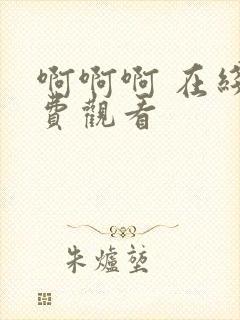 啊啊啊 在
費觀看
朱爐堃